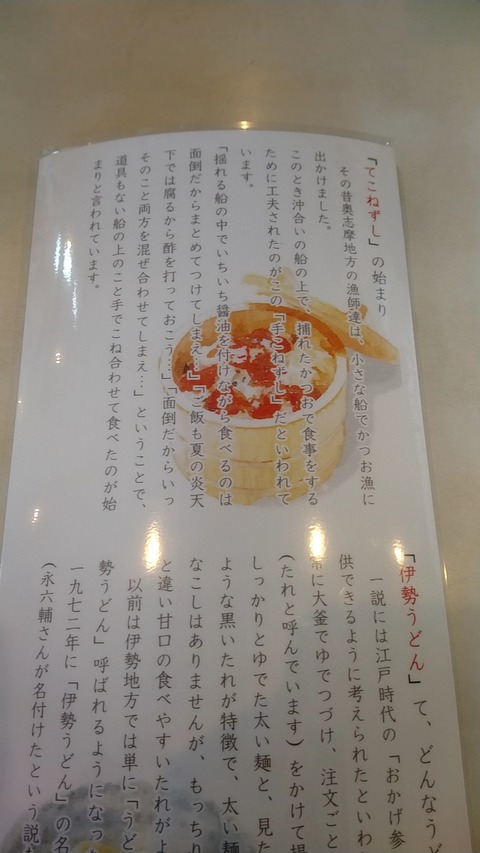 「てこねずし」の始まり
その昔奥志摩地方の漁師達は、小さな船でかつお漁に
出かけました。
このとき沖合いの船の上で、捕れたかつおで食事をする
ために工夫されたのがこの「手こねずし」だといわれて
います。
「揺れる船の中でいちいち醤油を付けながら食べるのは
面倒だからまとめてつけてしまえ…」「ご飯も夏の炎天
下では腐るから酢を打っておこう…」「面倒だからいっ
そのこと両方を混ぜ合わせてしまえ…」ということで、
道具もない船の上のこと手でこね合わせて食べたのが始
まりと言われています。
「伊勢うどん」て、どんなうど
一説には江戸時代の「おかげ参
供できるように考えられたといわ
常に大釜でゆでつづけ、注文ごと
(たれと呼んでいます)をかけて提
しっかりとゆでた太い麺と、見た
ような黒いたれが特徴で、太い麺
なこしはありませんが、もっちり
と違い甘口の食べやすいたれがよ
以前は伊勢地方では単に「うど
勢うどん」呼ばれるようになった
一九七二年に「伊勢うどん」の名
(永六輔さんが名付けたという説も